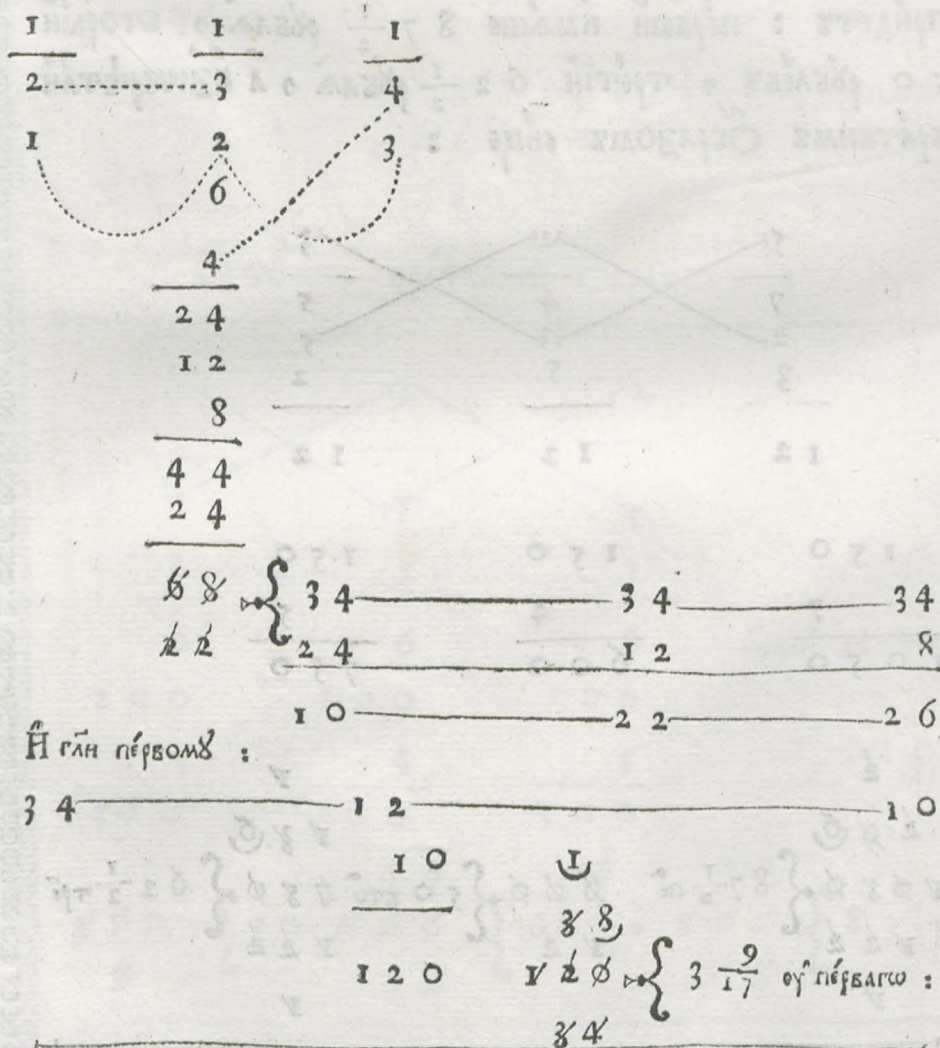 1 1 1
2 3 4
1 2 3
6
4
2 4
1 2
8
4 4
2 4
6 8 { 3 4 3 4 3 4
2 2 2 4 1 2 8
1 0 2 2 2 6
И҆ гл҃и пе́рвомꙋ :
3 4 1 2 1 0
1 0 1
3 8
1 2 0 1 2 0 { 3 9/17 ᲂу҆ пе́рвагѡ :
3 4